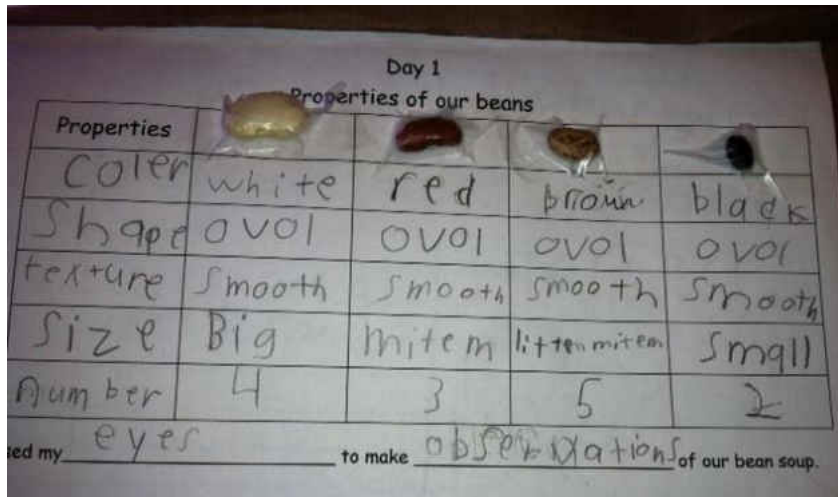 Day 1
Properties of our beans
Properties
Coler white red broun black
Shape ovol ovol ovol ovol
texture smooth smooth smooth smooth
Size Big mitem litten mitem small
number 4 3 5 2
sed my eyes to make observations of our bean soup.